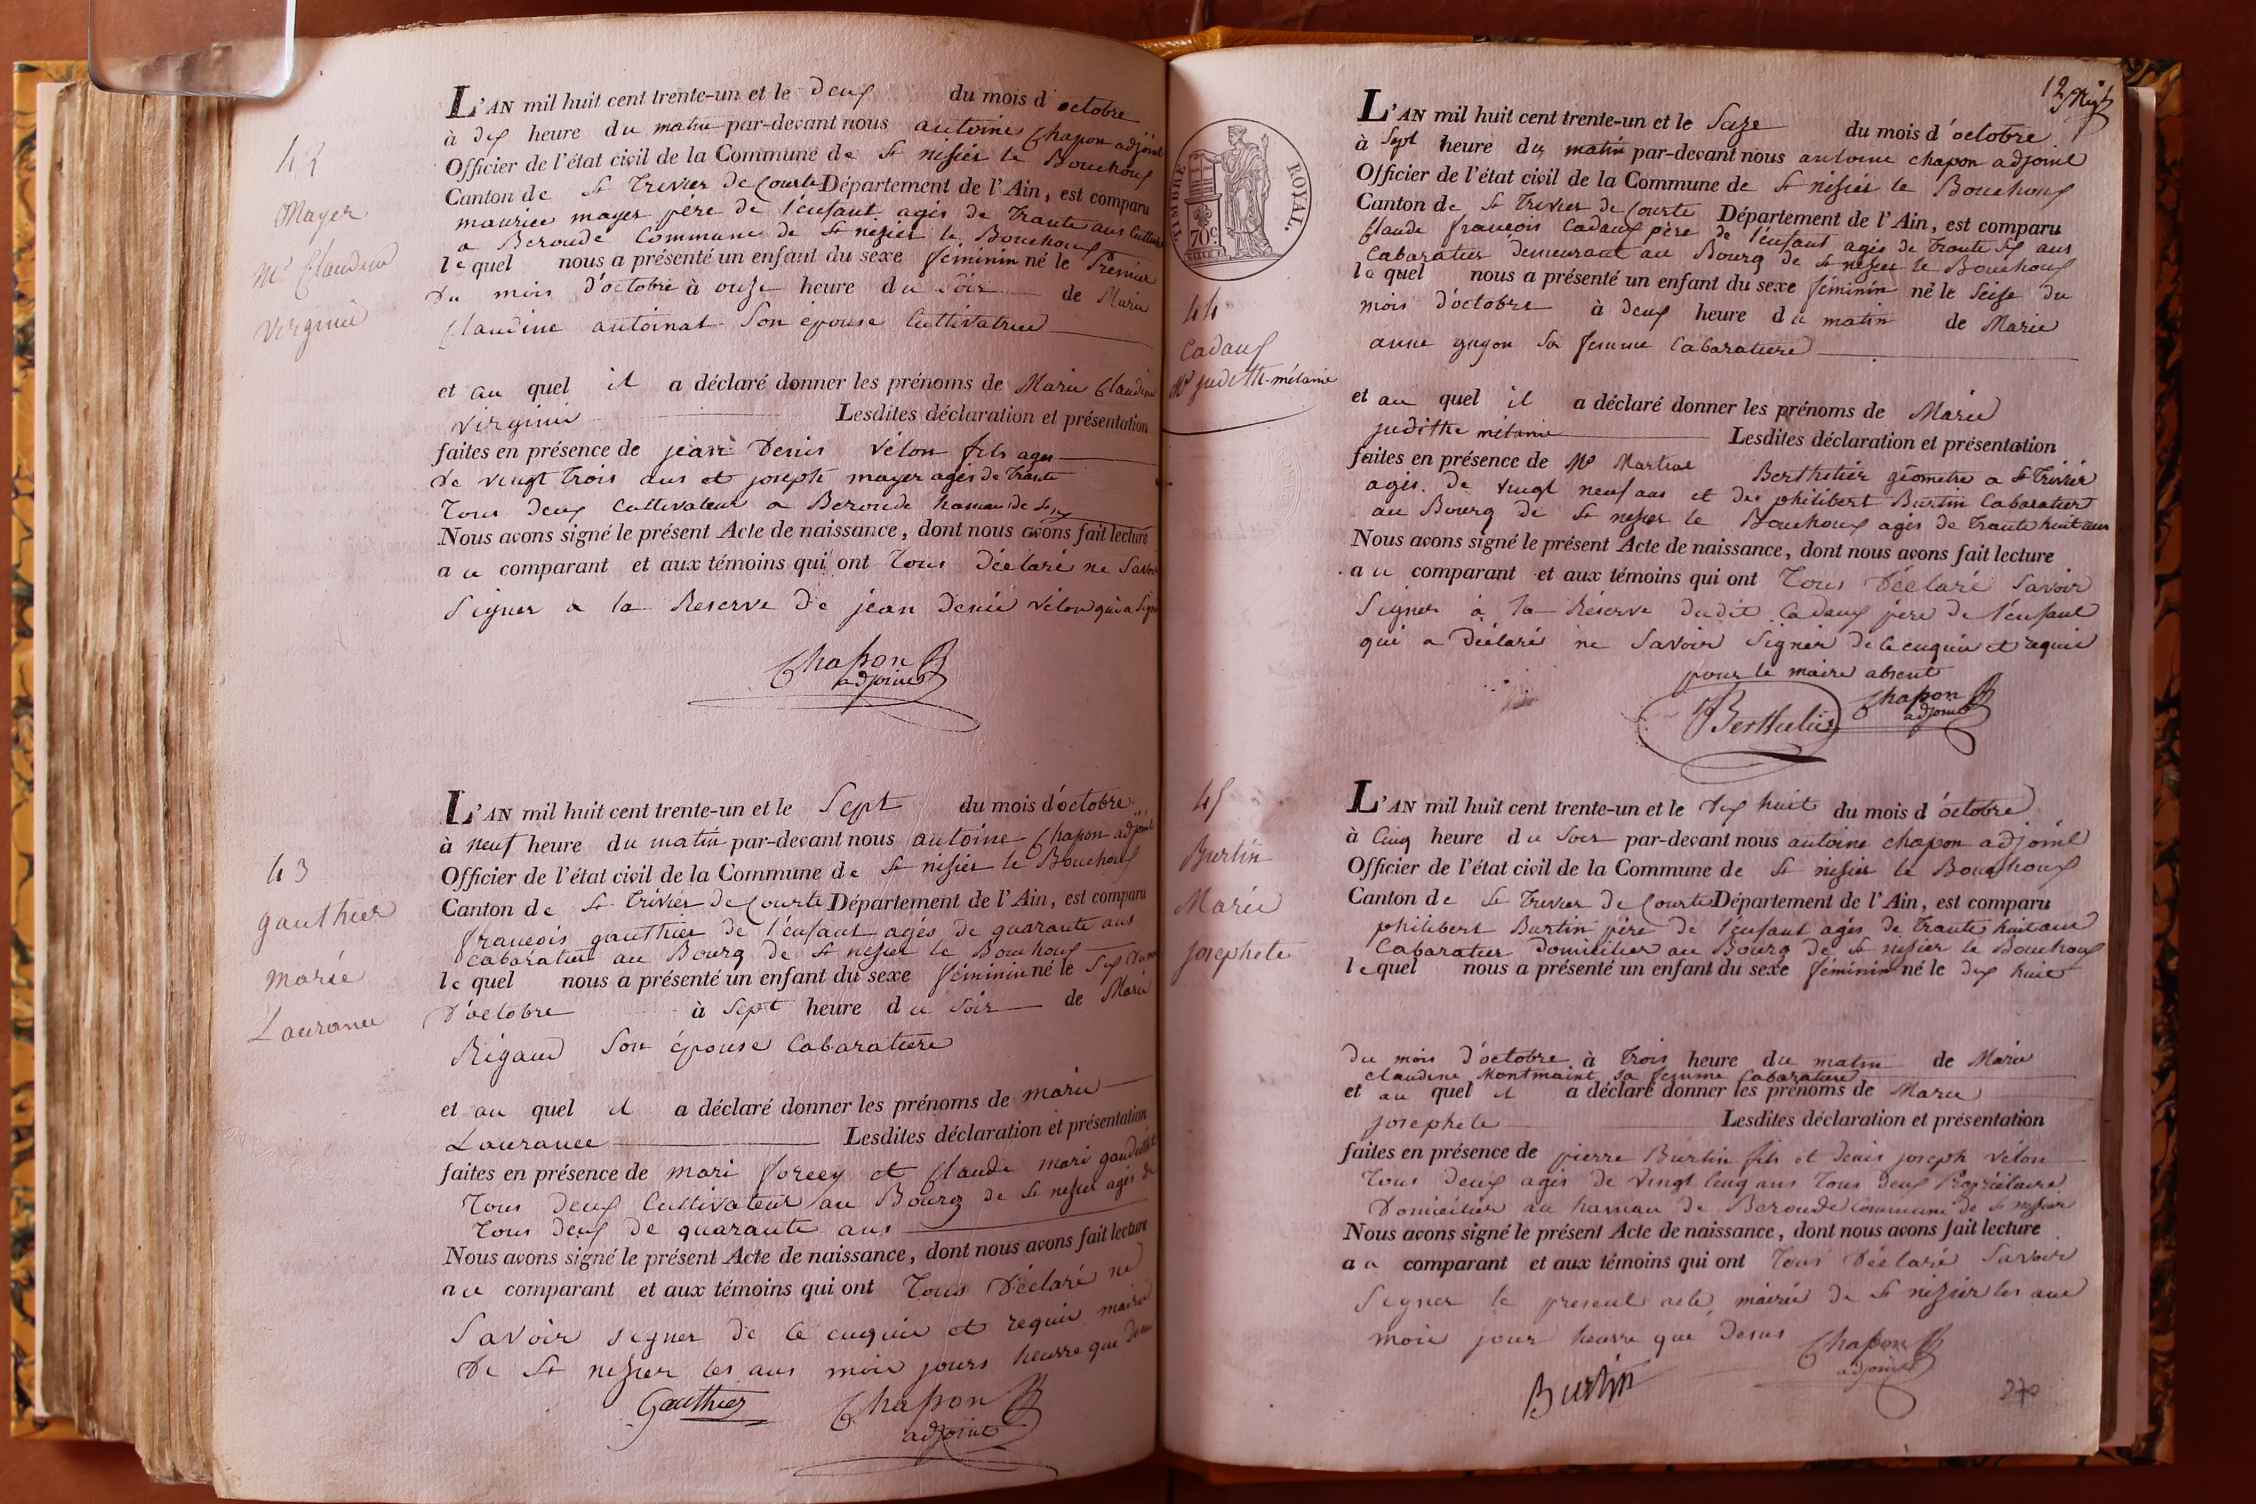 42
Mayer
Me Claudine
virginie
L'AN mil huit cent trente-un et le deux du mois d'octobre
à dix heure du matin par-devant nous antoine Chapon adjoint
Officier de l'état civil de la Commune de St nisier le Bouchoux
Canton de St Trivier de Courte Département de l'Ain, est comparu
maurice mayer père de l'enfant agés de trante ans
a Beroude Commune de St nisier le Bouchoux
lequel nous a présenté un enfant du sexe féminin né le Premier
Du mois d'octobre à onze heure du Soir de Marie
Claudine antoinat Son épouse Cultivatrice
et au quel il a déclaré donner les prénoms de Marie Claudine
virginie Lesdites déclaration et présentation
faites en présence de jean Denis vélon fils ages
de vingt trois ans et joseph mayer agés de trante
Tous deux Cultivateur a Beroude hameau de
Nous avons signé le présent Acte de naissance, dont nous avons fait lecture
au comparant et aux témoins qui ont Tous Déclaré ne Savoir
Signer a la Reserve de jean denis vélon qui a Signé
Chapon
adjoint
43
gauthier
marie
Laurance
L'AN mil huit cent trente-un et le Sept du mois d'octobre
à neuf heure du matin par-devant nous antoine Chapon adjoint
Officier de l'état civil de la Commune de St nisier le Bouchoux
Canton de St Trivier de Courte Département de l'Ain, est comparu
francois gauthier de l'enfant agés de quarante ans
cabaratier au Bourg de St nisier le Bouchoux
lequel nous a présenté un enfant du sexe féminin né le Six
D'octobre à Sept heure du Soir de Marie
Rigaud Son épouse Cabaratiere
et au quel il a déclaré donner les prénoms de marie
Laurance Lesdites déclaration et présentation
faites en présence de mari forcey et Claude mari
Tous deux Cultivateur au Bourg de St nisier agés de
Tous deux de quarante ans
Nous avons signé le présent Acte de naissance, dont nous avons fait lecture
au comparant et aux témoins qui ont Tous Déclaré ne
Savoir signer de ce enquis et requis mairie
De St nisier les ans mois jours heurre que
Gauthier Chapon
adjoint
12
TIMBRE ROYAL.
70c
44
Cadaux
Me judith-mélanie
L'AN mil huit cent trente-un et le Saze du mois d'octobre
à Sept heure du matin par-devant nous antoine chapon adjoint
Officier de l'état civil de la Commune de St nisier le Bouchoux
Canton de St Trivier de Courte Département de l'Ain, est comparu
Claude francois Cadaux père de l'enfant agés de trante six ans
Cabaratier demeurant au Bourg de St nisier le Bouchoux
lequel nous a présenté un enfant du sexe féminin né le Seize du
mois d'octobre à deux heure du matin de Marie
anne guyon Sa femme Cabaratiere
et au quel il a déclaré donner les prénoms de Marie
judithe mélanie Lesdites déclaration et présentation
faites en présence de Mr Martial Berthelier géometre a St Trivier
agés de vingt neuf ans et de philibert Burtin Cabaratier
au Bourg de St nisier le Bouchoux agés de trante huit ans
Nous avons signé le présent Acte de naissance, dont nous avons fait lecture
au comparant et aux témoins qui ont Tous Déclaré Savoir
Signer à la Réserve dudit Cadaux père de l'enfant
qui a Déclaré ne Savoir Signer de ce enquis et requis
pour le maire absent
Berthelier Chapon
adjoint
45
Burtin
Marie
josephete
L'AN mil huit cent trente-un et le dix huit du mois d'octobre
à Cinq heure du Soir par-devant nous antoine chapon adjoint
Officier de l'état civil de la Commune de St nisier le Bouchoux
Canton de St Trivier de Courte Département de l'Ain, est comparu
philibert Burtin père de l'enfant agés de trante huit ans
Cabaratier Domicilier au Bourg de St nisier le Bouchoux
lequel nous a présenté un enfant du sexe féminin né le dix huit
du mois d'octobre à trois heure du matin de Marie
claudine Montmaint sa femme Cabaratiere
et au quel il a déclaré donner les prénoms de Marie
josephete Lesdites déclaration et présentation
faites en présence de pierre Burtin fils et denis joseph vélon
Tous deux agés de vingt Cinq ans Tous deux Propriétaire
Domicilier au hameau de Beroude Commune de St nisier
Nous avons signé le présent Acte de naissance, dont nous avons fait lecture
au comparant et aux témoins qui ont Tous Déclaré Savoir
Signer le present acte, mairie de St nizier les ans
mois jour heurre que desus Chapon
adjoint
Burtin
270